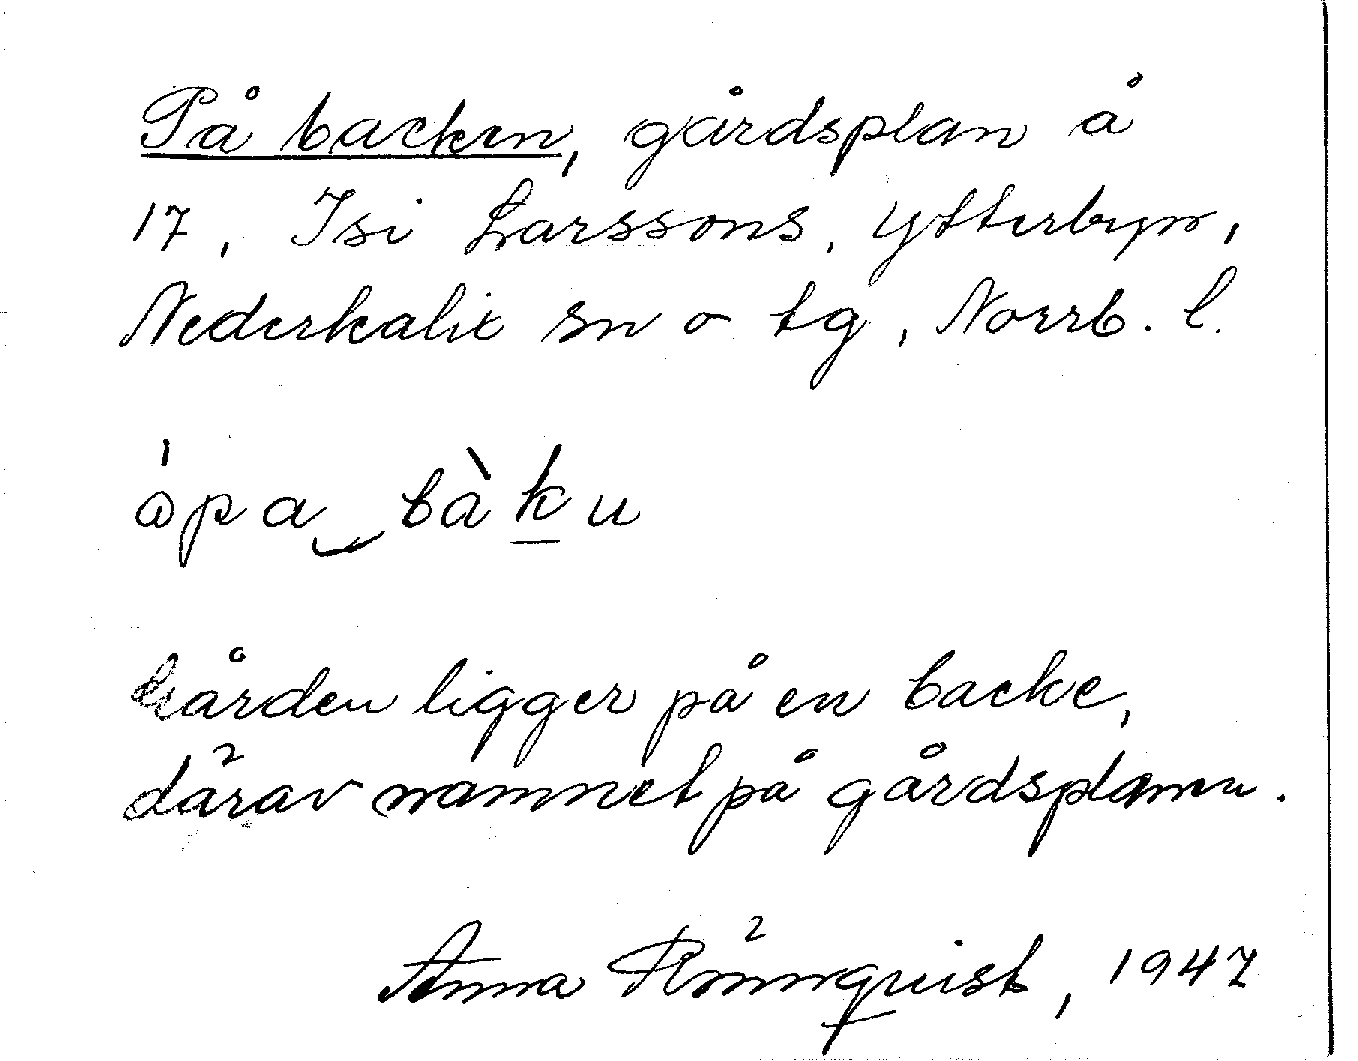 På backen, gårdsplan å
17, Isi Larssons, Ytterbyn,
Nederkalix sn o tg, Norrb. l.
ɷ́pa‿bàku
Gården ligger på en backe,
därav namnet på gårdsplanen.
Anna Rönnqvist, 1947